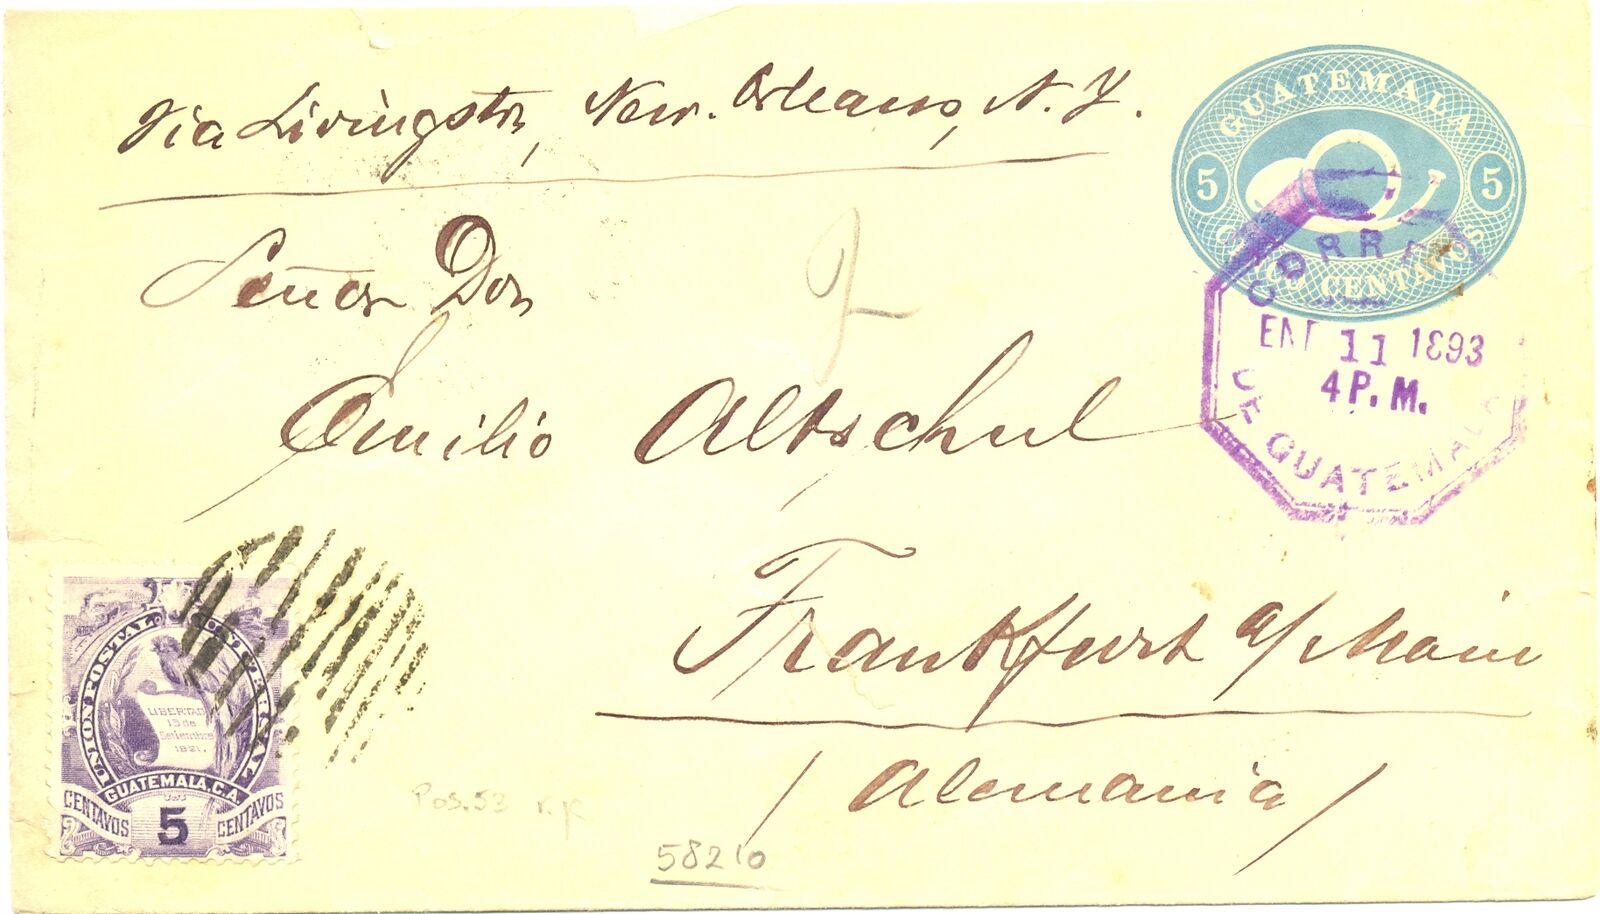 Via Livingston, New. Orleans, N. Y.
GUATEMALA
5 5
CINCO CENTAVOS
CORREOS
ENE 11 1893
4 P. M.
DE GUATEMALA
Señor Don
Emilio Altschul
Frankfurt a/Main
/Alemania/
UNION POSTAL UNIVERSAL
LIBERTAD
15 de
Setiembre
1821.
GUATEMALA, C.A.
CENTAVOS 5 CENTAVOS
Pos. 53 r.
58210